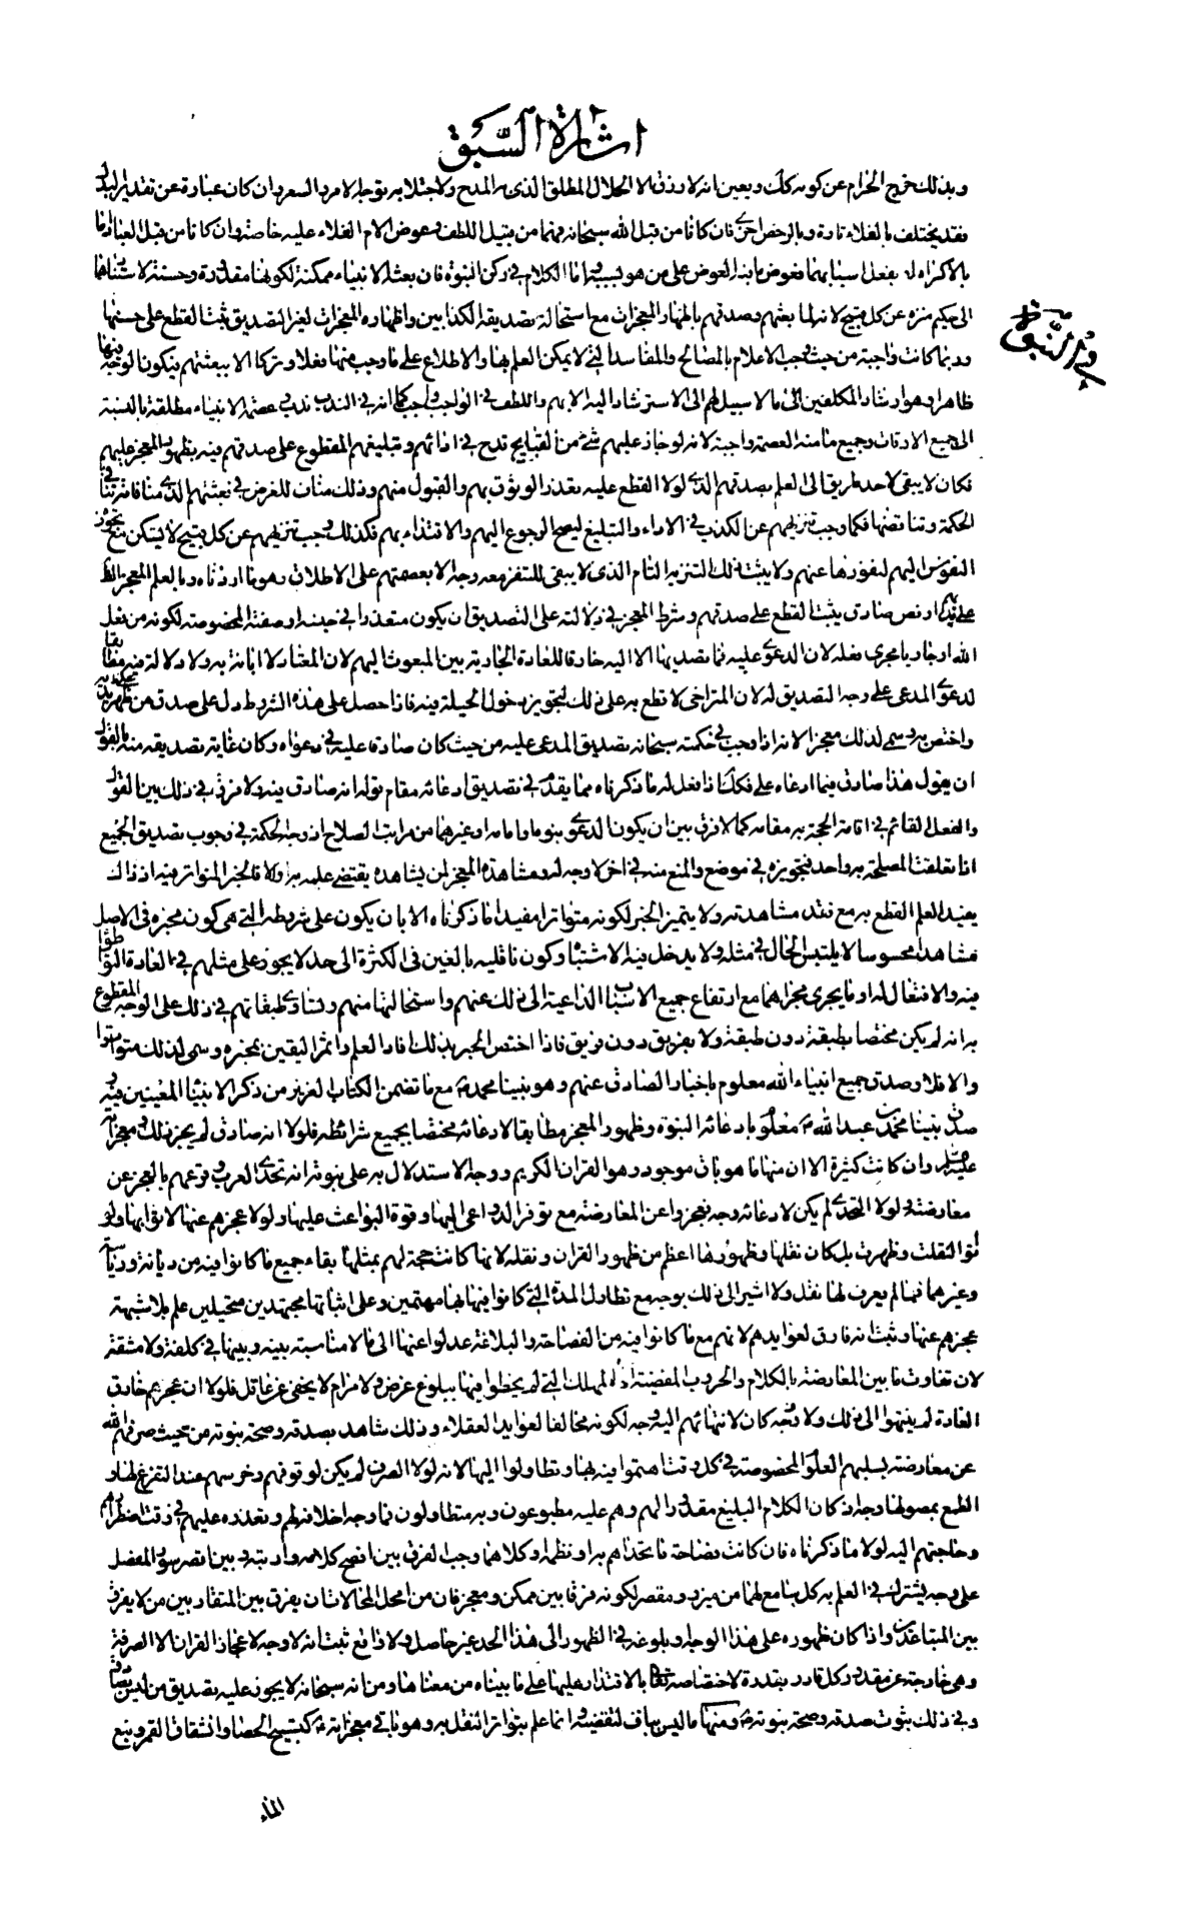 اشارة السبق
وبذلك خرج الحرام عن كونه كذلك ويعين انه لا رزق الا الحلال المطلق الذى به المدح ولاجتلابه توجه الامر والسعر وان كان عبارة عن تقدير البدل
فقد يختلف بالغلاء تارة وبالرخص اخرى فان كانا من قبل الله سبحانه فهما من قبيل اللطف وعوض الام الغلاء عليه خاصة وان كانا من قبل العباد اما
بالاكراه او بفعل اسبابهما فعوض ما بهذا العوض على من هو بسببه اما الكلام فى ركن النبوة فان بعثه الانبياء ممكنة لكونها مقدورة وحسنة لاستنادها
فى النبوة
الى حكيم منزه عن كل قبيح لانه انما بعثهم وصدقهم باظهار المعجزات مع استحالة تصديقه الكذابين واظهاره المعجزات لغير التصديق فثبت القطع على حسنها
وربما كانت واجبة من حيث وجب الاعلام بالمصالح والمفاسد التى لا يمكن العلم بها والاطلاع على ما وجب منها فعلا وتركا الا ببعثتهم فيكون الوجه فيها
ظاهرا وهو ارشاد المكلفين الى ما لا سبيل لهم الى الاسترشاد اليه الا بهم واللطف فى الواجب واجب كما انه فى الندب ندب وعصمة الانبياء مطلقة بالنسبة
الى جميع الاوقات وجميع ما منه العصمة واجبة لانه لو جاز عليهم شئ من القبايح قدح فى ادائهم وتبليغهم المقطوع على صدقهم فيه بظهور المعجز عليهم
فكان لا يبقى لاحد طريق الى العلم بصدقهم الذى لولا القطع عليه تعذر الوثوق بهم والقبول منهم وذلك مناف للغرض فى بعثتهم الذى منافاته تنافى
الحكمة وتناقضها فكما وجب تنزيههم عن الكذب فى الاداء والتبليغ ليصح الرجوع اليهم والاقتداء بهم فكذلك وجب تنزيههم عن كل قبيح لا ليتمكن تجوز
النفوس اليهم لنفورها عنهم ولا يثبت ذلك التنزيه التام الذى لا يبقى للتنفر معه وجه الا بعصمتهم على الاطلاق وهو ما اردناه وبالعلم المعجز الظاهر
على يدهم او نص صادق يثبت القطع على صدقهم وشرط المعجز فى دلالته على التصديق ان يكون متعذرا فى جنسه او صفته المخصوصة لكونه من فعل
الله او جاريا مجرى فعله لان الدعوى عليه فما تصديقها الا اليه خارقا للعادة الجارية بين المبعوث اليهم لان المعتاد لا ابانة به ولا دلالة فيه مطابقا
لدعوى المدعى على وجه التصديق له لان المتراخى لا قطع به على ذلك لتجويزه دخول الحيلة فيه فاذا حصل على هذه الشروط دل على صدق من ظهر على يديه
واختص به وسمى لذلك معجزا لانه اذا وجب فى حكمته سبحانه تصديق المدعى عليه من حيث كان صادقا عليه فى دعواه وكان غاية تصديقه منه بالقول
ان يقول هذا صادق فيما ادعاه على فكذلك اذا فعل له ما ذكرناه مما يقدم فى تصديق ادعائه مقام قوله انه صادق فيه ولا فرق فى ذلك بين القول
والفعل القائم فى اقامة الحجة به مقامه كما لا فرق بين ان يكون الدعوى بنوة او امامة او غيرهما من مراتب الصلاح اذ وجه الحكمة فى وجوب تصديق الجميع
اذا تعلقت المصلحة به واحد فتجويزه فى موضع والمنع منه فى اخر لا وجه له ومشاهدة المعجز لمن يشاهده يقتضى علمه به والا فالخبر المتواتر فيه اذ ذاك
يفيد العلم القطع به مع فقد مشاهدته ولا يتميز الخبر لكونه متواترا مفيدا ما ذكرناه الا بان يكون على شروطه التى هى كون مخبره فى الاصل
مشاهدا محسوسا لا يلتبس الحال فى مثله ولا يدخل فيه الاشتباه وكون ناقليه بالغين فى الكثرة الى حد لا يجوز على مثلهم فى العادة التواطؤ
فيه والافتعال له او ما يجرى مجراهما مع ارتفاع جميع الاسباب الداعية الى ذلك عنهم واستحالتها منهم وتساوى طبقاتهم فى ذلك على الوجه المقطوع
به انه لم يكن مختصا بطبقة دون طبقة ولا بفريق دون فريق فاذا اختص الخبر بذلك افاد العلم واثمر اليقين بمخبره وسمى لذلك متواترا
والا فلا وصدق جميع انبياء الله معلوم باخبار الصادق عنهم وهو نبينا محمد ص مع ما تضمن الكتاب العزيز من ذكر الانبياء المعينين فيه
صدق نبينا محمد بن عبد الله ص معلوم بادعائه النبوة وظهور المعجز مطابقا لادعائه مختصا بجميع شرائطه فلولا انه صادق لم يجز ذلك ومعجزاته
عليه السلام وان كانت كثيرة الا ان منها ما هو باق موجود وهو القران الكريم ووجه الاستدلال به على نبوته انه تحدى العرب وقرعهم بالعجز عن
معارضته ولولا التحدى لم يكن لادعائه وجه فعجزوا عن المعارضة مع توفر الدواعى اليها وقوة البواعث عليها ولولا عجزهم عنها لاتوا بها ولو
اتوا لنقلت وظهرت بل كان نقلها وظهورها اعظم من ظهور القران ونقله لانها كانت حجة لهم بمثلها بقاء جميع ما كانوا فيه من ديانة ورياسة
وغيرهما فما لم يعرف لها نقل ولا اشير الى ذلك بوجه مع تطاول المدة التى كانوا فيها بها مهتمين وعلى اثباتها مجتهدين متحيلين علم بلا شبهة
عجزهم عنها وثبت انه فارق لعوايدهم لانهم مع ما كانوا فيه من الفصاحة والبلاغة عدلوا عنها الى ما لا مناسبة بينه وبينها فى كلفة ولا مشقة
لان تفاوت ما بين المعارضة بالكلام والحروب المفضية اذا لمهلك التى لم يحظوا فيها ببلوغ غرض ولا مرام لا يخفى عن عاقل فلولا ان عجزهم خارق
العادة لم ينتهوا الى ذلك ولا وجه كان لانتهائهم اليه وجه لكونه مخالفا لعوايد العقلاء وذلك شاهد بصدقه وصحة نبوته من حيث صرفهم الله
عن معارضته بسلبهم العلوم المخصوصة فى كل وقت اهتموا فيه بها وتطاولوا اليها لانه لولا الصرف لم يكن لوقوفهم وخرسهم عند التفرغ لها و
الطمع بحصولها وجه اذ كان الكلام البليغ مقدورا لهم وهم عليه مطبوعون وبه متطاولون فما وجه اخلافه لهم وتعذره عليهم فى وقت اضطرارهم
وحاجتهم اليه لولا ما ذكرناه فان كانت فصاحة ما تحداهم به او نظمه او كلاهما وجب الفرق بين افصح كلامهم وارتبه وبين اقصر سور المفصل
على وجه يشترك فى العلم به كل سامع لهما من مبرز ومقصر لكونه فرقا بين ممكن ومعجز فان من امحل المحالات ان يفرق بين المتقاربين من لا يفرق
بين المتباعدين واذا كان ظهوره على هذا الوجه وبلوغه فى الظهور الى هذا الحد غير حاصل ولا واقع ثبت انه لا وجه لاعجاز القران الا الصرفة
وهى خارجة عن مقدور كل قادر بقدرة لاختصاصه تعالى بالاقتدار عليها على ما بيناه من معناها ومن انه سبحانه لا يجوز عليه تصديق من ليس بصادق
وفى ذلك ثبوت صدقه وصحة نبوته ص ومنها ما ليس بباق لتقضيه وانما علم بتواتر النقل به وهو باقى معجزاته ص كتسبيح الحصا وانشقاق القمر ونبع
الماء